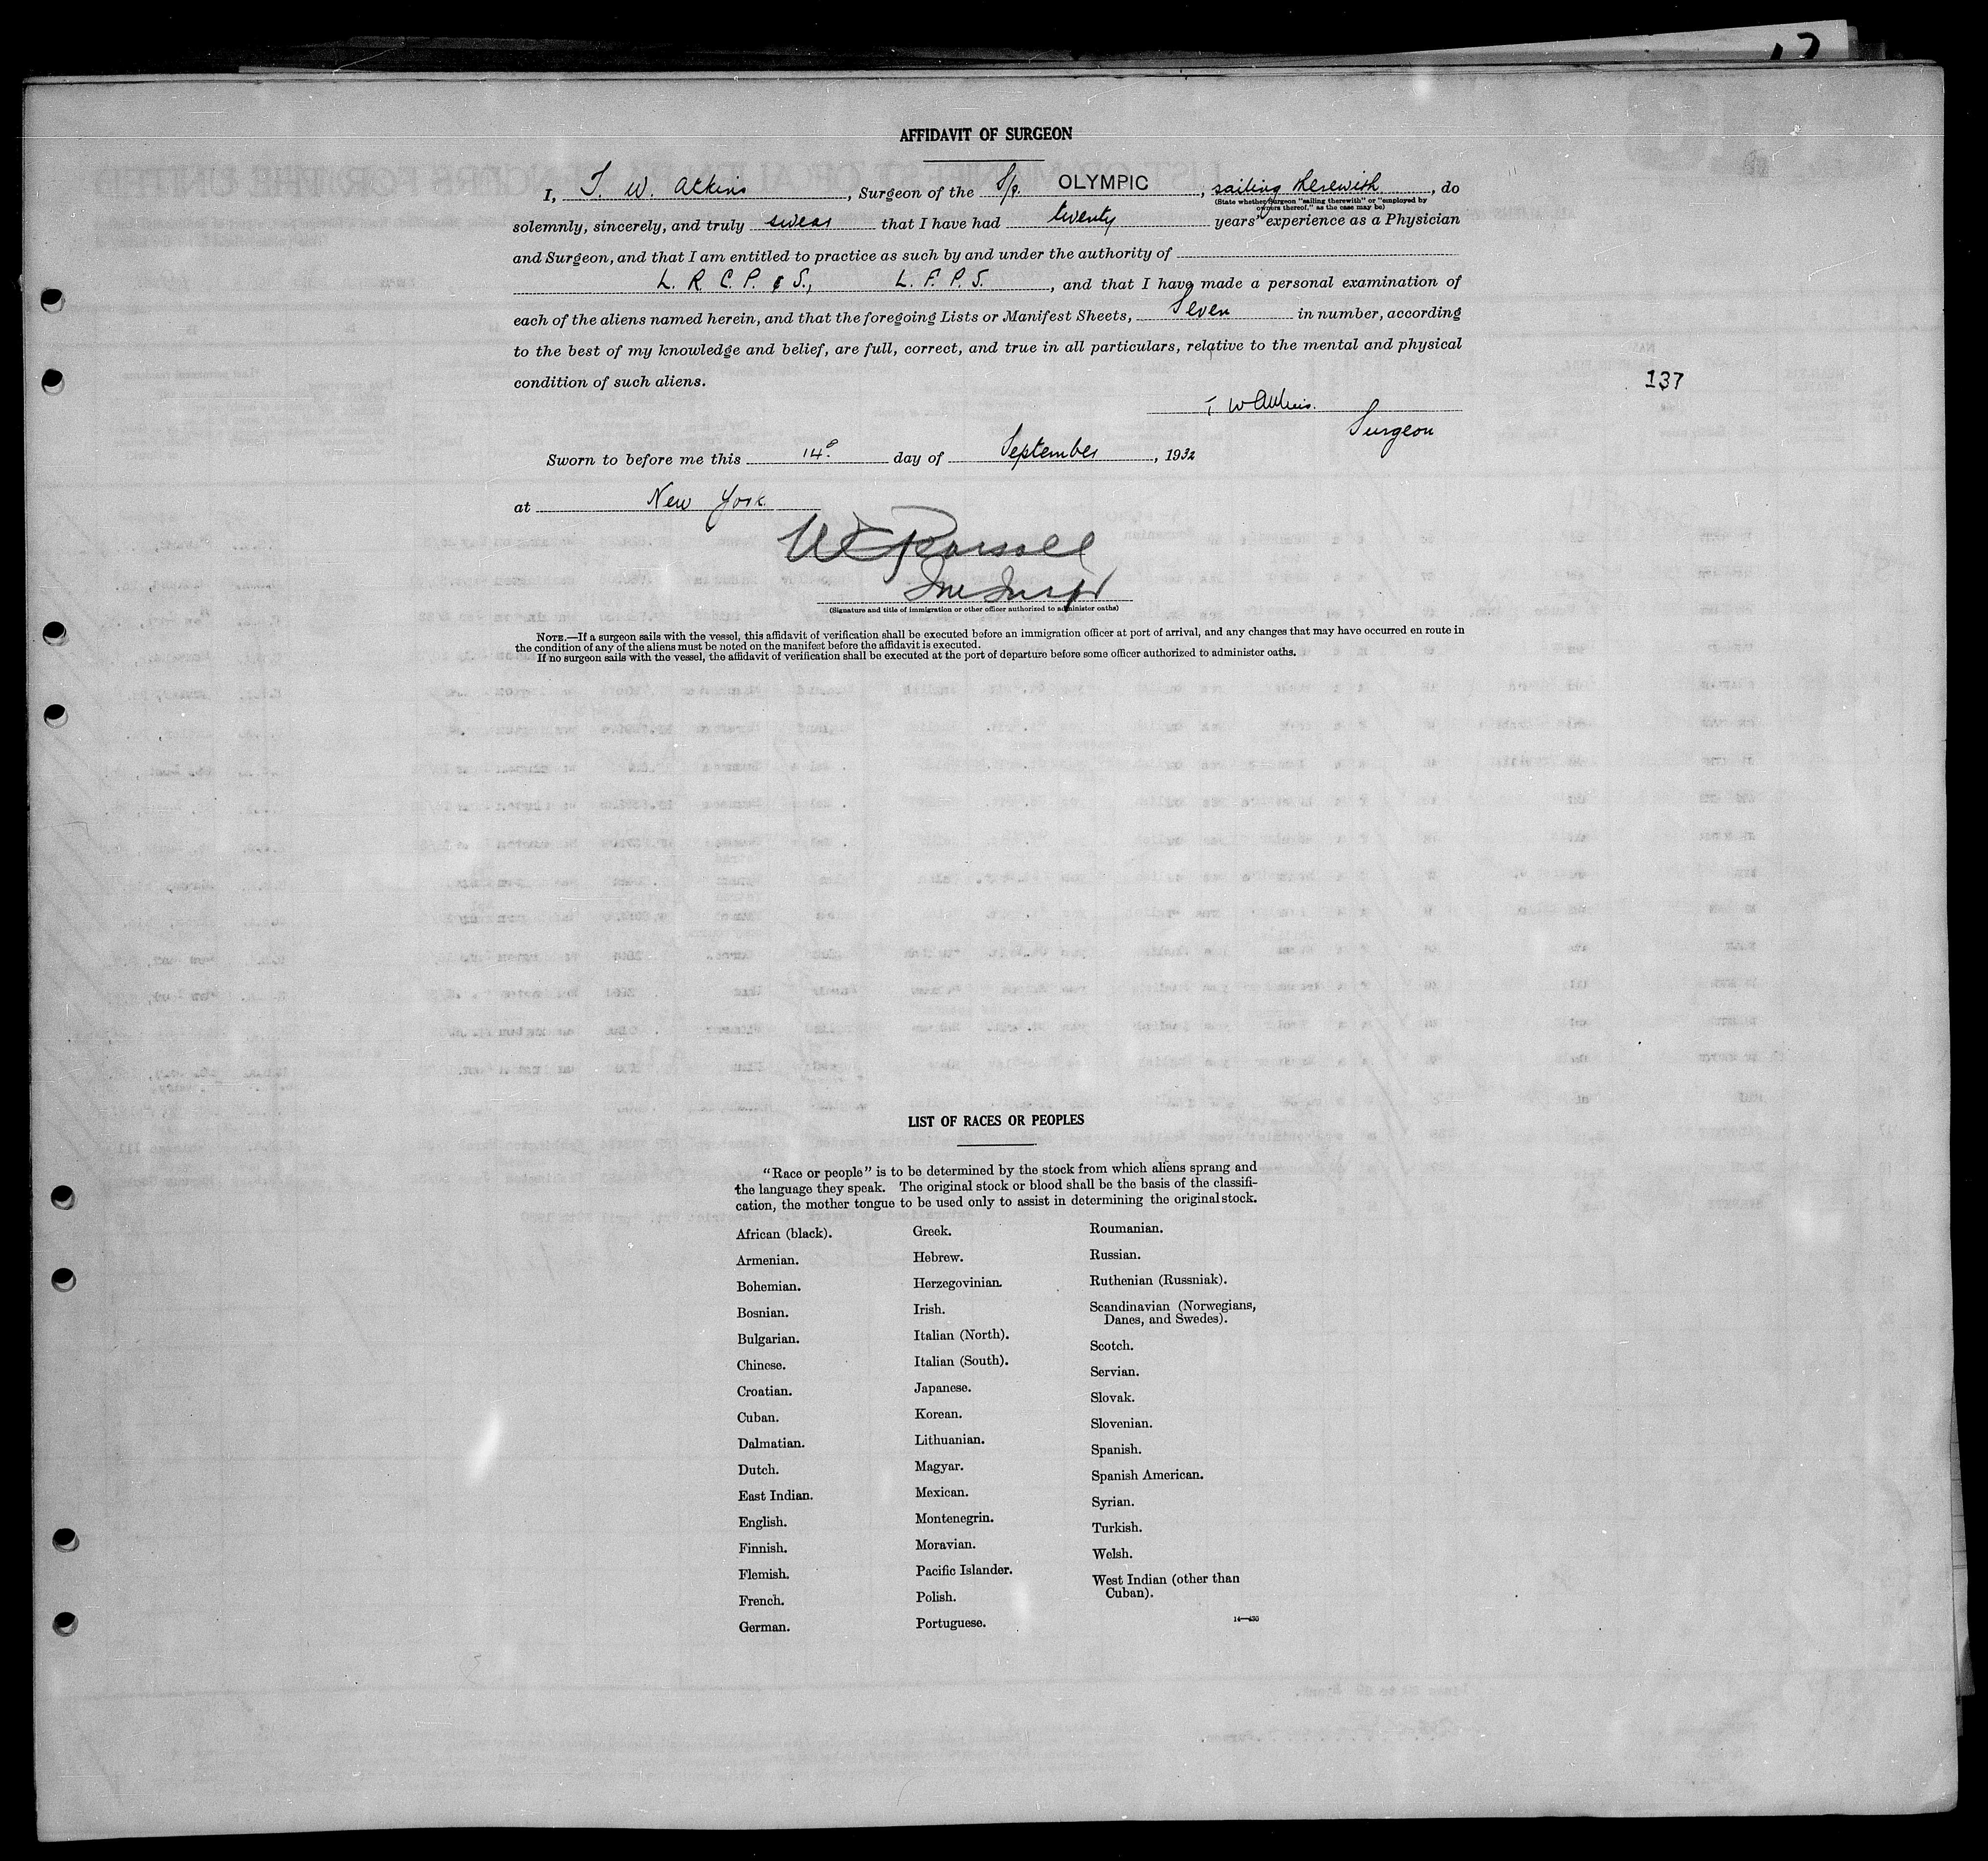 AFFIDAVIT OF SURGEON
I, T. W. Atkins, Surgeon of the S/s. OLYMPIC, sailing therewith, do
(State whether Surgeon "sailing therewith" or "employed by
owners thereof," as the case may be)
solemnly, sincerely, and truly swear that I have had twenty years' experience as a Physician
and Surgeon, and that I am entitled to practice as such by and under the authority of
L. R. C. P. & S., L. F. P. S., and that I have made a personal examination of
each of the aliens named herein, and that the foregoing Lists or Manifest Sheets, Seven in number, according
to the best of my knowledge and belief, are full, correct, and true in all particulars, relative to the mental and physical
condition of such aliens.
137
T W Atkins.
Surgeon
Sworn to before me this 14 day of September, 1932
at New York.
(Signature and title of immigration or other officer authorized to administer oaths)
NOTE.—If a surgeon sails with the vessel, this affidavit of verification shall be executed before an immigration officer at port of arrival, and any changes that may have occurred en route in
the condition of any of the aliens must be noted on the manifest before the affidavit is executed.
If no surgeon sails with the vessel, the affidavit of verification shall be executed at the port of departure before some officer authorized to administer oaths.
LIST OF RACES OR PEOPLES
"Race or people" is to be determined by the stock from which aliens sprang and
the language they speak. The original stock or blood shall be the basis of the classifi-
cation, the mother tongue to be used only to assist in determining the original stock.
African (black).
Armenian.
Bohemian.
Bosnian.
Bulgarian.
Chinese.
Croatian.
Cuban.
Dalmatian.
Dutch.
East Indian.
English.
Finnish.
Flemish.
French.
German.
Greek.
Hebrew.
Herzegovinian.
Irish.
Italian (North).
Italian (South).
Japanese.
Korean.
Lithuanian.
Magyar.
Mexican.
Montenegrin.
Moravian.
Pacific Islander.
Polish.
Portuguese.
Roumanian.
Russian.
Ruthenian (Russniak).
Scandinavian (Norwegians,
Danes, and Swedes).
Scotch.
Servian.
Slovak.
Slovenian.
Spanish.
Spanish American.
Syrian.
Turkish.
Welsh.
West Indian (other than
Cuban).
14—430